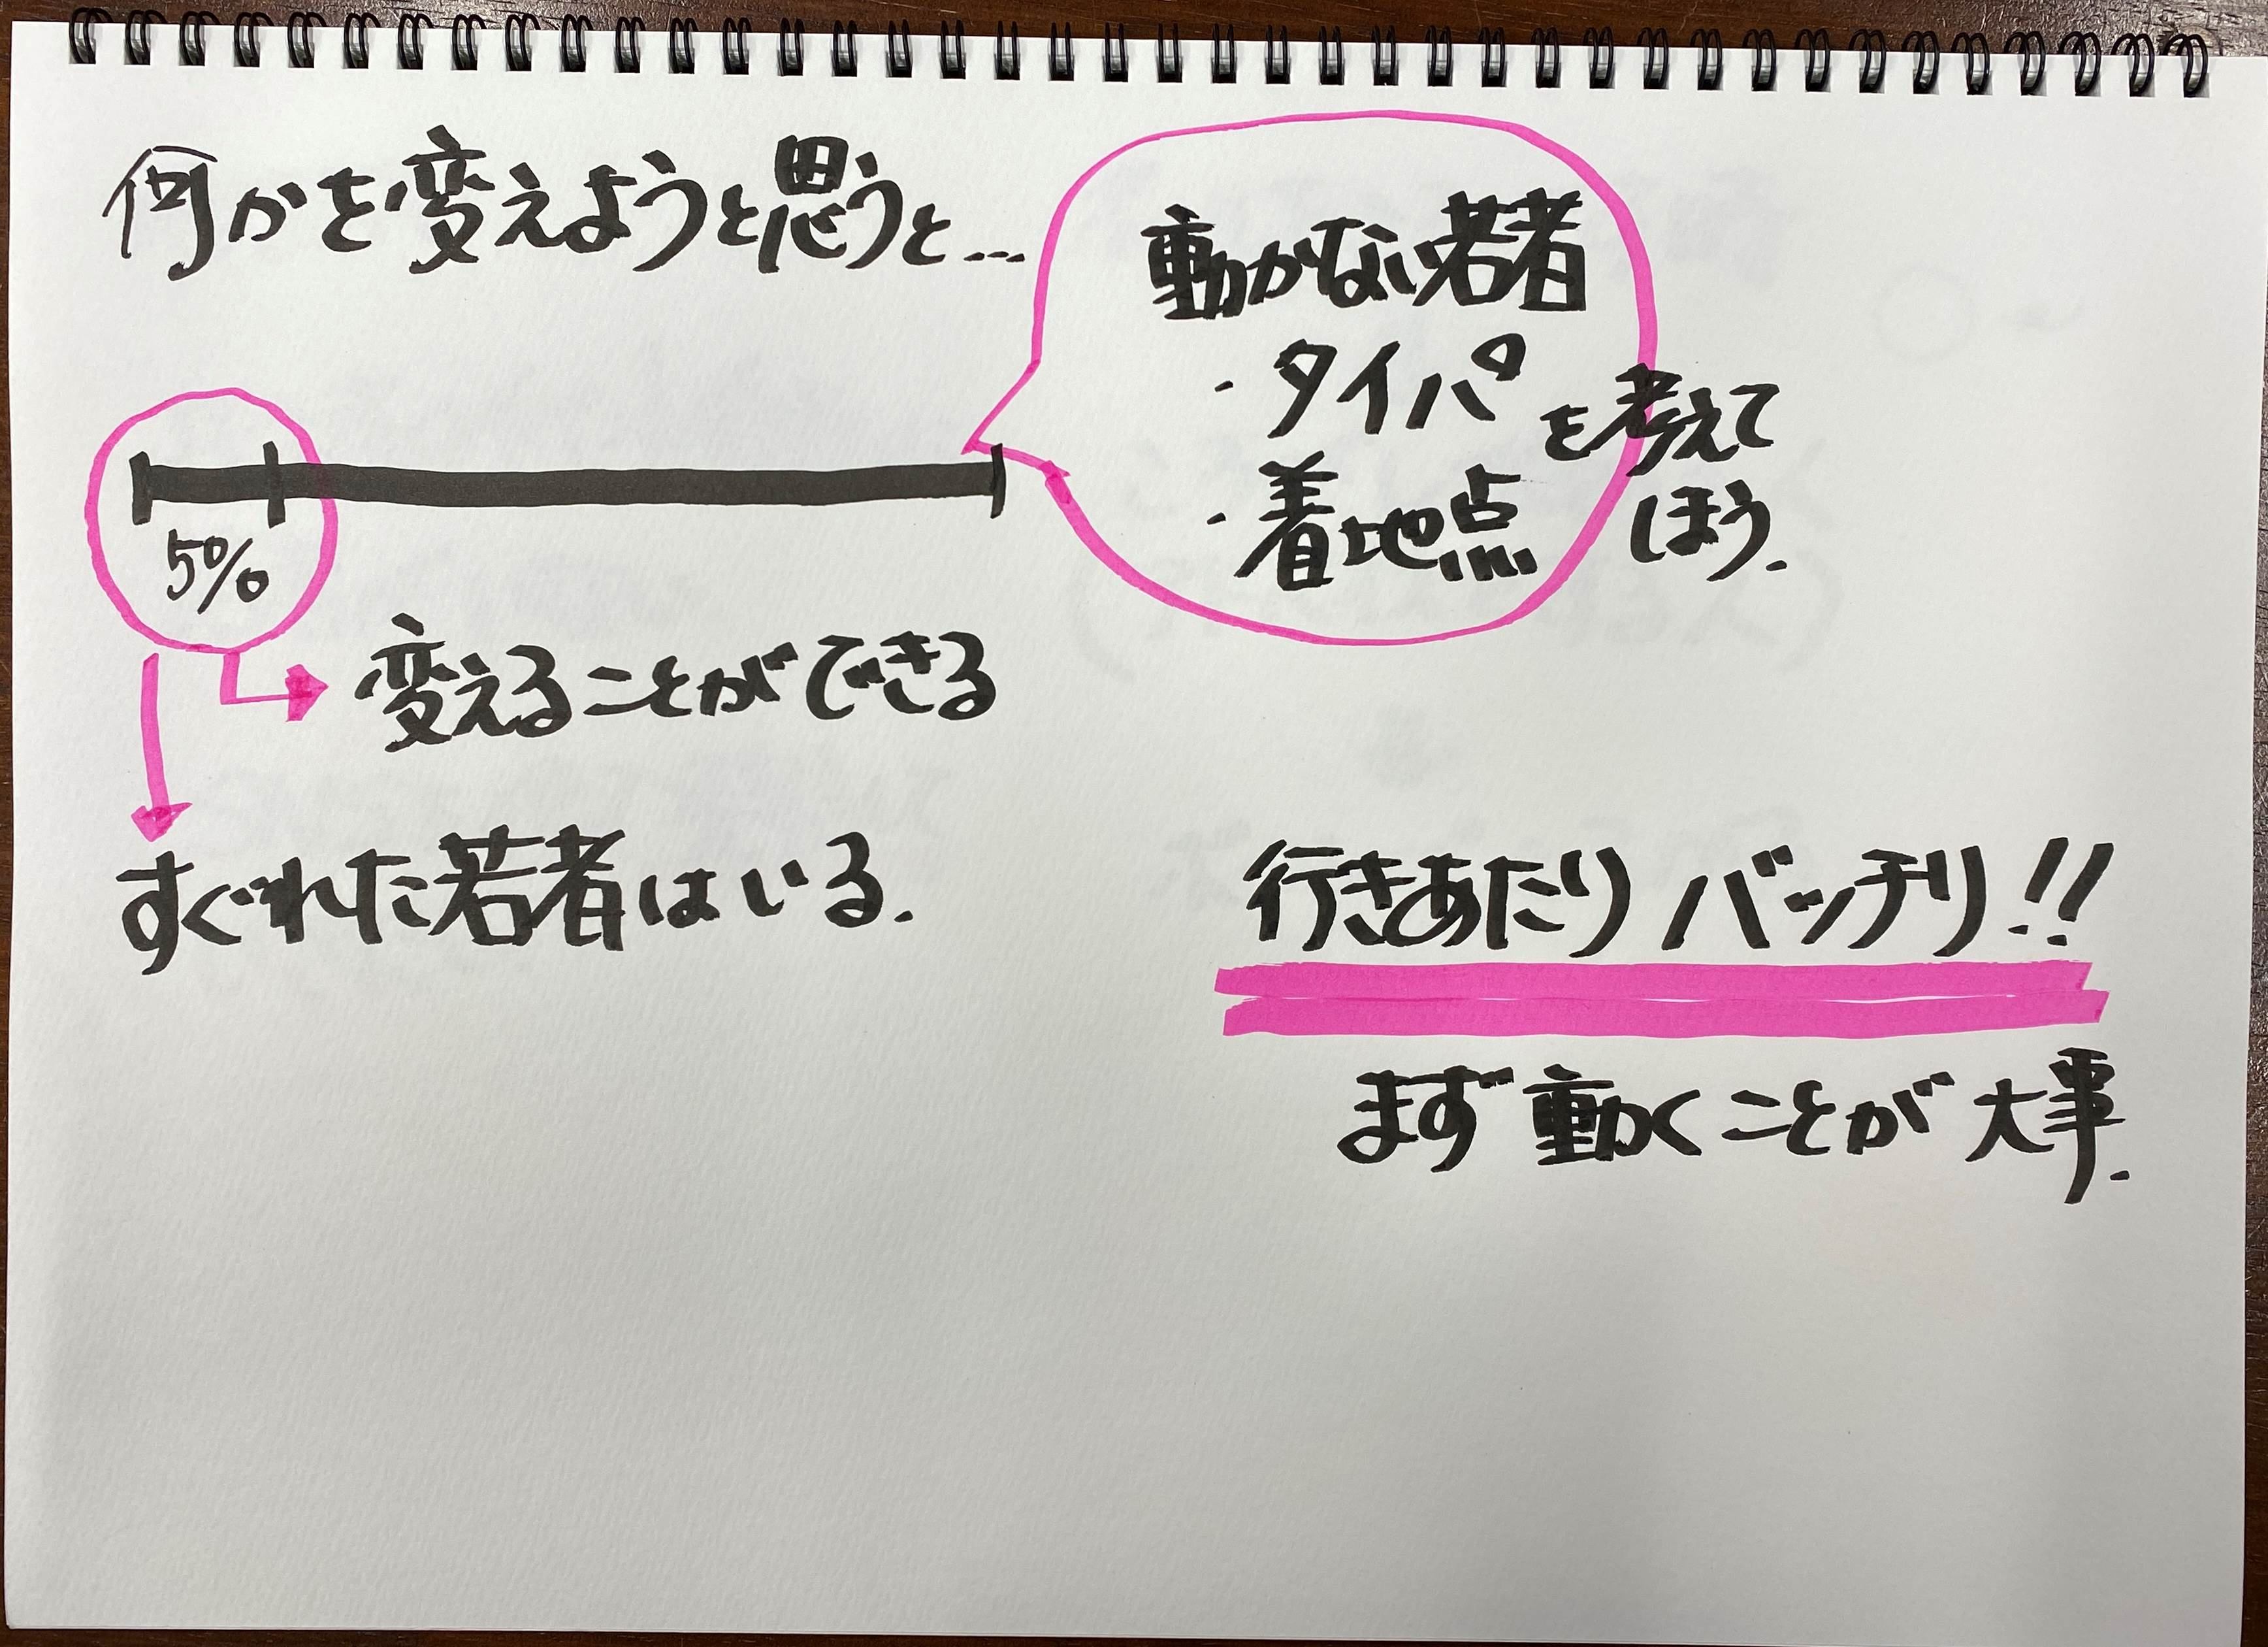 何かを変えようと思うと…
動かない若者
・タイパ
を考えて
・着地点
しまう.
5%
変えることができる
すぐれた若者はいる.
行きあたりバッチリ!!
まず動くことが大事.